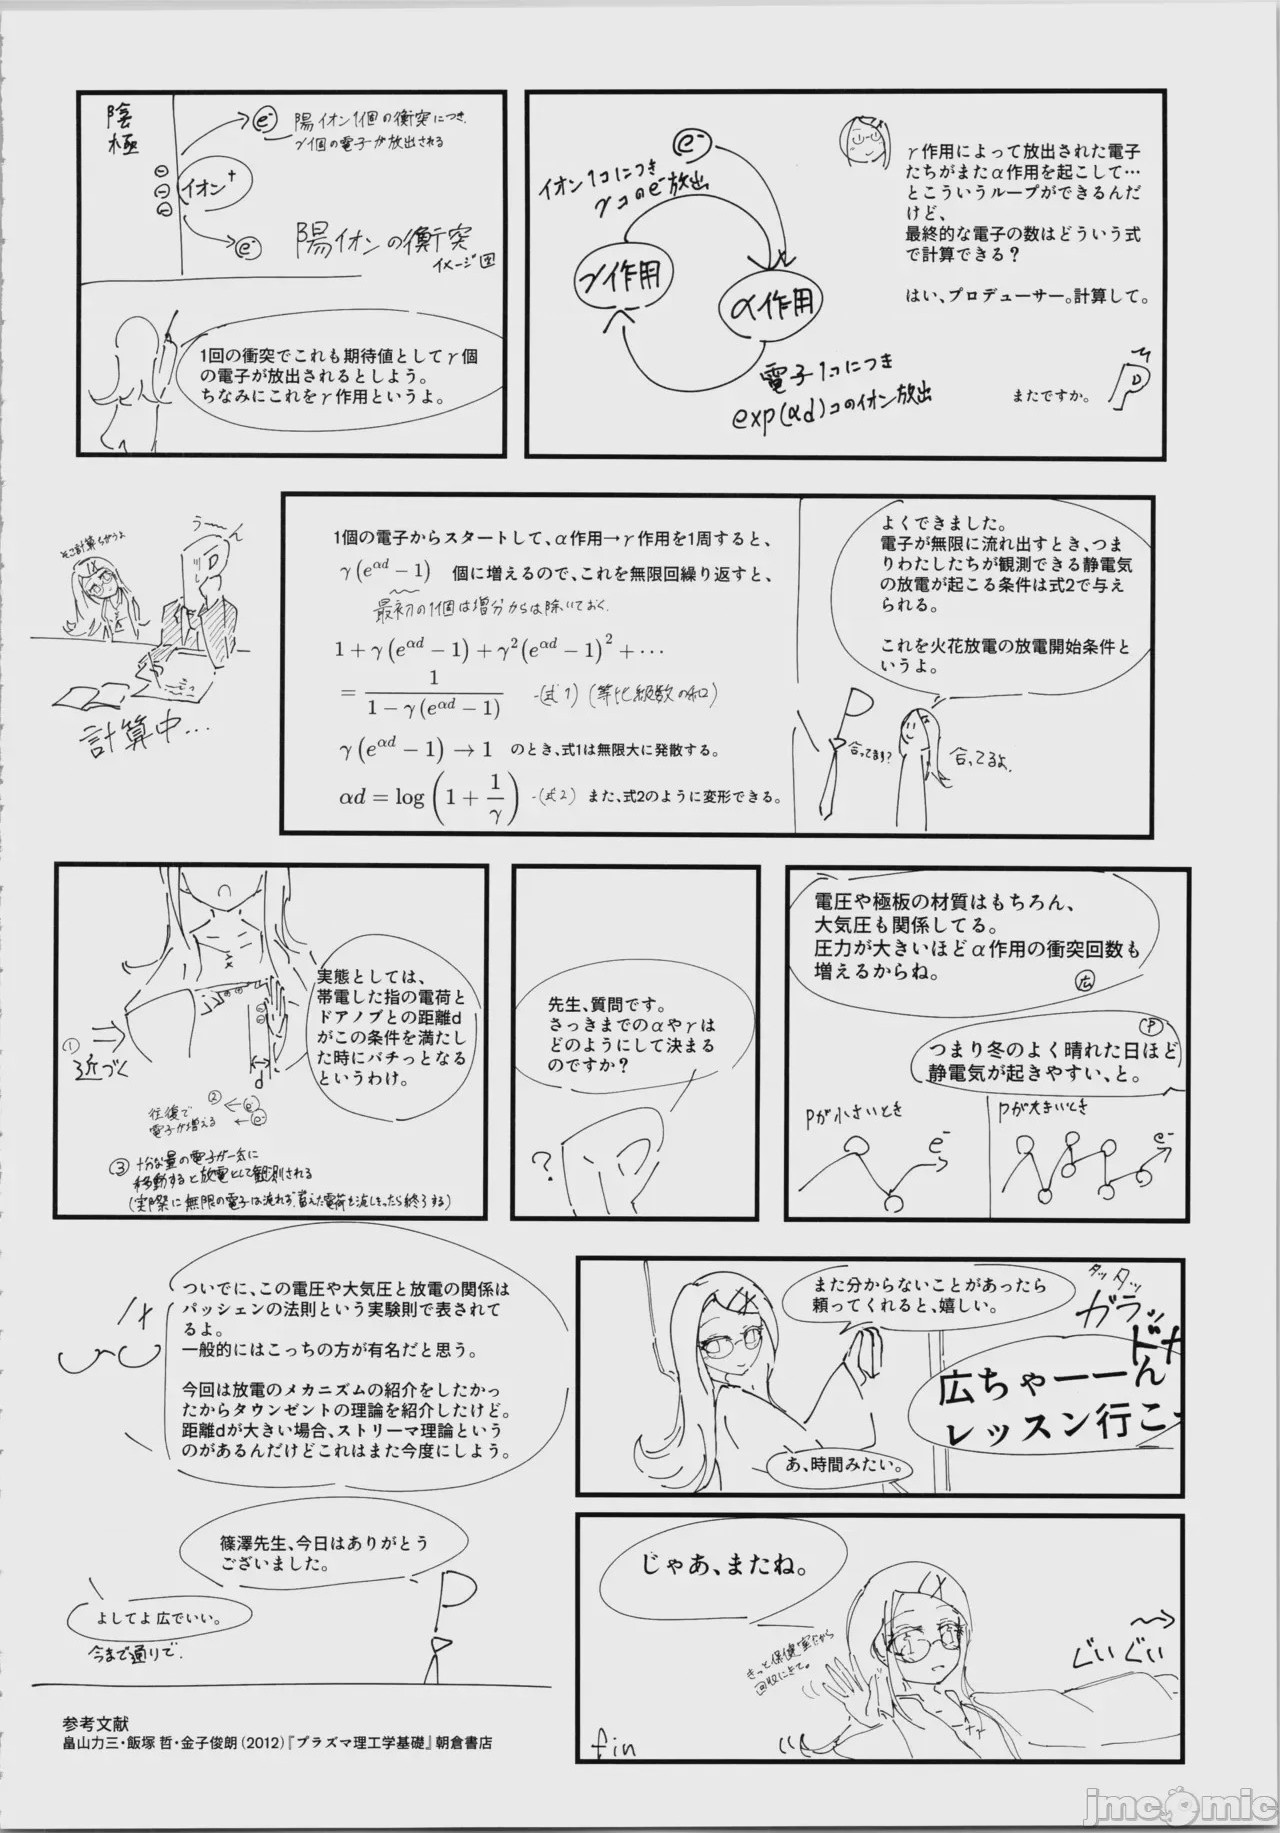 陰極
e⁻
陽イオン1個の衝突につき、
γ個の電子が放出される
イオン⁺
e⁻
陽イオンの衝突
イメージ図
1回の衝突でこれも期待値としてγ個
の電子が放出されるとしよう。
ちなみにこれをγ作用というよ。
e⁻
イオン1コにつき
γコのe⁻放出
γ作用
α作用
電子1コにつき
exp(αd)コのイオン放出
γ作用によって放出された電子
たちがまたα作用を起こして…
とこういうループができるんだ
けど、
最終的な電子の数はどういう式
で計算できる？
はい、プロデューサー。計算して。
またですか。
P
う〜ん
そこ計算ちがうよ
P
計算中...
1個の電子からスタートして、α作用→γ作用を1周すると、
γ(e^{αd} − 1) 個に増えるので、これを無限回繰り返すと、
最初の1個は増分からは除いておく.
1 + γ(e^{αd} − 1) + γ²(e^{αd} − 1)² + ···
= 1/(1 − γ(e^{αd} − 1)) -(式1) (等比級数の和)
γ(e^{αd} − 1) → 1 のとき、式1は無限大に発散する。
αd = log(1 + 1/γ) -(式2) また、式2のように変形できる。
よくできました。
電子が無限に流れ出すとき、つま
りわたしたちが観測できる静電気
の放電が起こる条件は式2で与え
られる。
これを火花放電の放電開始条件と
いうよ。
P
合ってます?
合ってるよ.
実態としては、
帯電した指の電荷と
ドアノブとの距離d
がこの条件を満たし
た時にバチっとなる
というわけ。
①
近づく
d
②
往復で
電子が増える
e⁻
e⁻
③ 十分な量の電子が一気に
移動すると放電として観測される
(実際に無限の電子は流れず、蓄えた電荷を流しきったら終了する)
先生、質問です。
さっきまでのαやγは
どのようにして決まる
のですか？
?
P
電圧や極板の材質はもちろん、
大気圧も関係してる。
圧力が大きいほどα作用の衝突回数も
増えるからね。
広
P
つまり冬のよく晴れた日ほど
静電気が起きやすい、と。
Pが小さいとき
e⁻
Pが大きいとき
e⁻
ついでに、この電圧や大気圧と放電の関係は
パッシェンの法則という実験則で表されて
るよ。
一般的にはこっちの方が有名だと思う。
今回は放電のメカニズムの紹介をしたかっ
たからタウンゼントの理論を紹介したけど。
距離dが大きい場合、ストリーマ理論という
のがあるんだけどこれはまた今度にしよう。
篠澤先生、今日はありがとう
ございました。
P
よしてよ 広でいい。
今まで通りで.
また分からないことがあったら
頼ってくれると、嬉しい。
タッタッ
ガラッ
広ちゃーーん
レッスン行こ
あ、時間みたい。
じゃあ、またね。
きっと保健室だから
回収にきて。
ぐいぐい
fin
参考文献
畠山力三・飯塚 哲・金子俊朗(2012)『プラズマ理工学基礎』朝倉書店
jmcomic